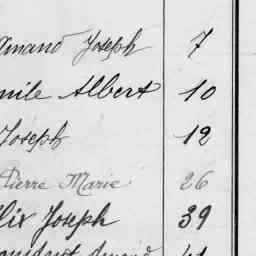 Amand Joseph 7
mile Albert 10
Joseph 12
Pierre Marie 26
lix Joseph 39